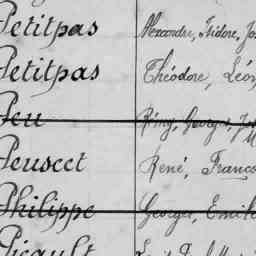 Petitpas Alexandre, Isidore, Jo
Petitpas Théodore, Léon
Peu Rémy, Georges, Jo
Peuscet René, Franco
Philippe Georges, Emile
Picault